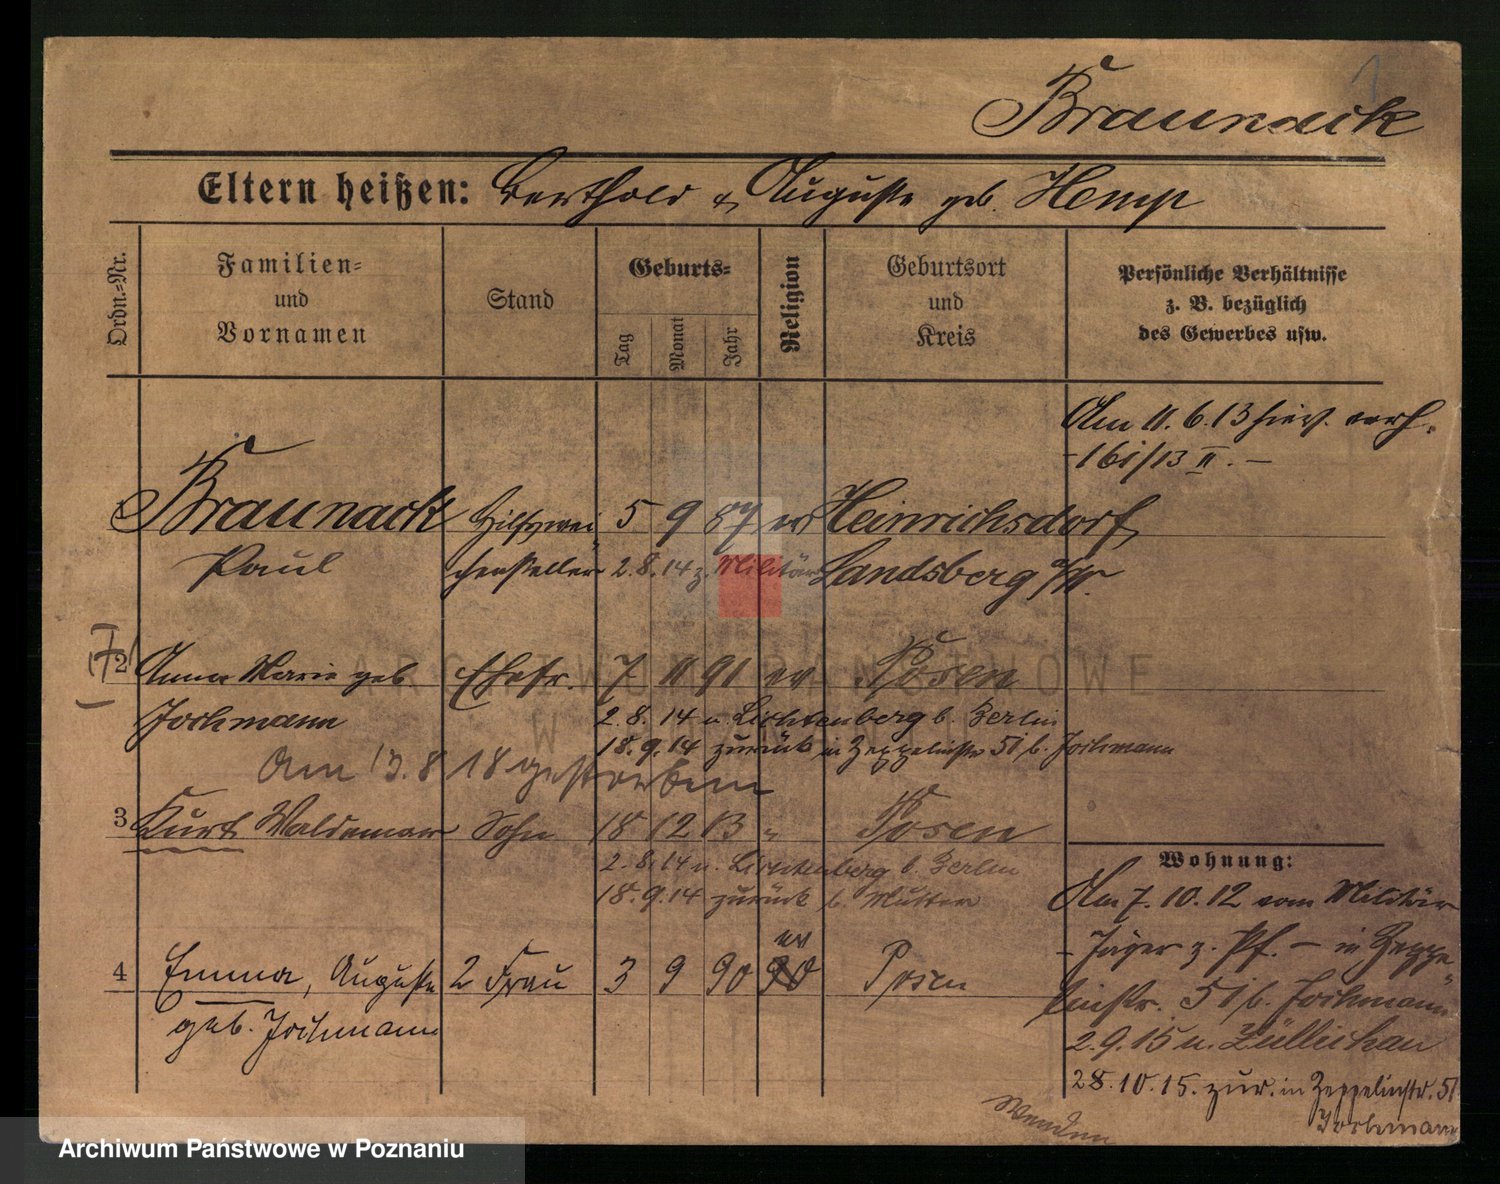 1
Braunack
Eltern heißen: Berthold & Auguste geb. Hemp
Ordn.-Nr.
Familien-
und
Vornamen
Stand
Geburts-
Tag
Monat
Jahr
Religion
Geburtsort
und
Kreis
Persönliche Verhältnisse
z. B. bezüglich
des Gewerbes usw.
Am 11.6.13 hier verh.
-161/13 II. -
Braunack Hilfswei 5 9 87 ev Heinrichsdorf
Paul chensteller 2.8.14 z. Militär Landsberg a/W.
2 Anna Marie geb Ehefr. 7 11 91 ev Posen
Jochmann 2.8.14 n. Lichtenberg b. Berlin
18.9.14 zurück in Zeppelinstr 51 b. Jochmann
Am 13.8 18 gestorben
3 Kurt Waldemar Sohn 18 12 13 " Posen
2.8.14 n. Lichtenberg b. Berlin
18.9.14 zurück b. Mutter
4 Emma, Auguste 2 Frau 3 9 90 ev Posen
geb. Jochmann
Wohnung:
Am 7.10.12 vom Militär
- Jäger z. Pf. - in Zeppe
linstr. 51 b. Jochmann
2.9.15 n. Züllichau
28.10.15. zur. in Zeppelinstr. 51
Jochmann
Wenden
ARCHIWUM PAŃSTWOWE
W POZNANIU
Archiwum Państwowe w Poznaniu